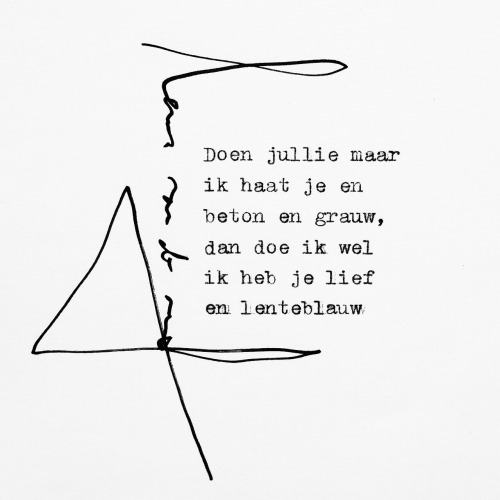 Doen jullie maar
ik haat je en
beton en grauw,
dan doe ik wel
ik heb je lief
en lenteblauw